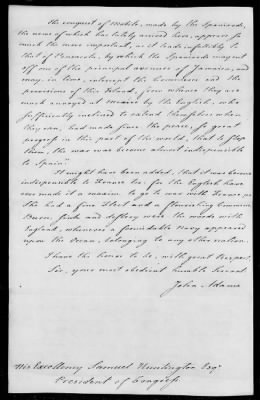 The conquest of Mobile, made by the Spaniards,
the news of which has lately arrived here, appears so
much the more important, as it leads infallibly to
that of Pensacola, by which the Spaniards may cut
off one of the principal avenues of Jamaica, and
may, in time, intercept the Commerce and the
provisions of this Island, from whence they are
much annoyed at Mexico by the English, who
sufficiently inclined to extend themselves when
they can, had made since the peace, so great
progress in this part of the world, that to stop
them, the war was become almost indispensible
to Spain"
It might have been added, that it was become
indispensible to France too, for the English have
ever made it a maxim to go to war with France, when
She had a fine Fleet and a flourishing Commerce
Burn, sink and destroy were the words with
England, whenever a formidable Navy appeared
upon the Ocean, belonging to any other nation.
I have the honor to be, with great Respect,
Sir, your most obedient humble Servant
John Adams
His Excellency Samuel Huntington Esqr
President of Congress.